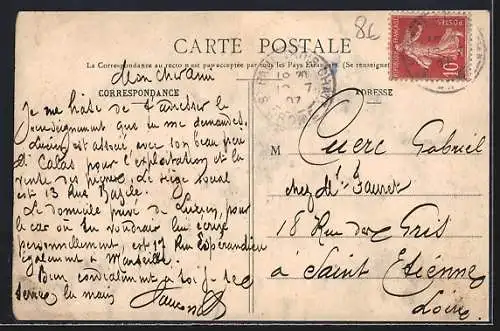 8E
CARTE POSTALE
La Correspondance au recto n'est pas acceptée par tous les Pays Etrangers (Se renseigner
CORRESPONDANCE
ADRESSE
POSTES
10
07
Mon cher ami
Je me hâte de t'adresser le
renseignement que tu me demandes.
Lucien est associé avec son beau père
Mr Calas pour l'exploitation et la
vente des pignes. Le siège social
est 13 Rue
Le domicile privé de Lucien, pour
le cas où tu voudrais lui écrire
personnellement, est 17 Rue Espérandieu
également à Marseille.
Bien cordialement à toi je te
serre la main
M Cuerc Gabriel
chez Mr Fauret
18 Rue des Gris
à Saint Etienne
Loire